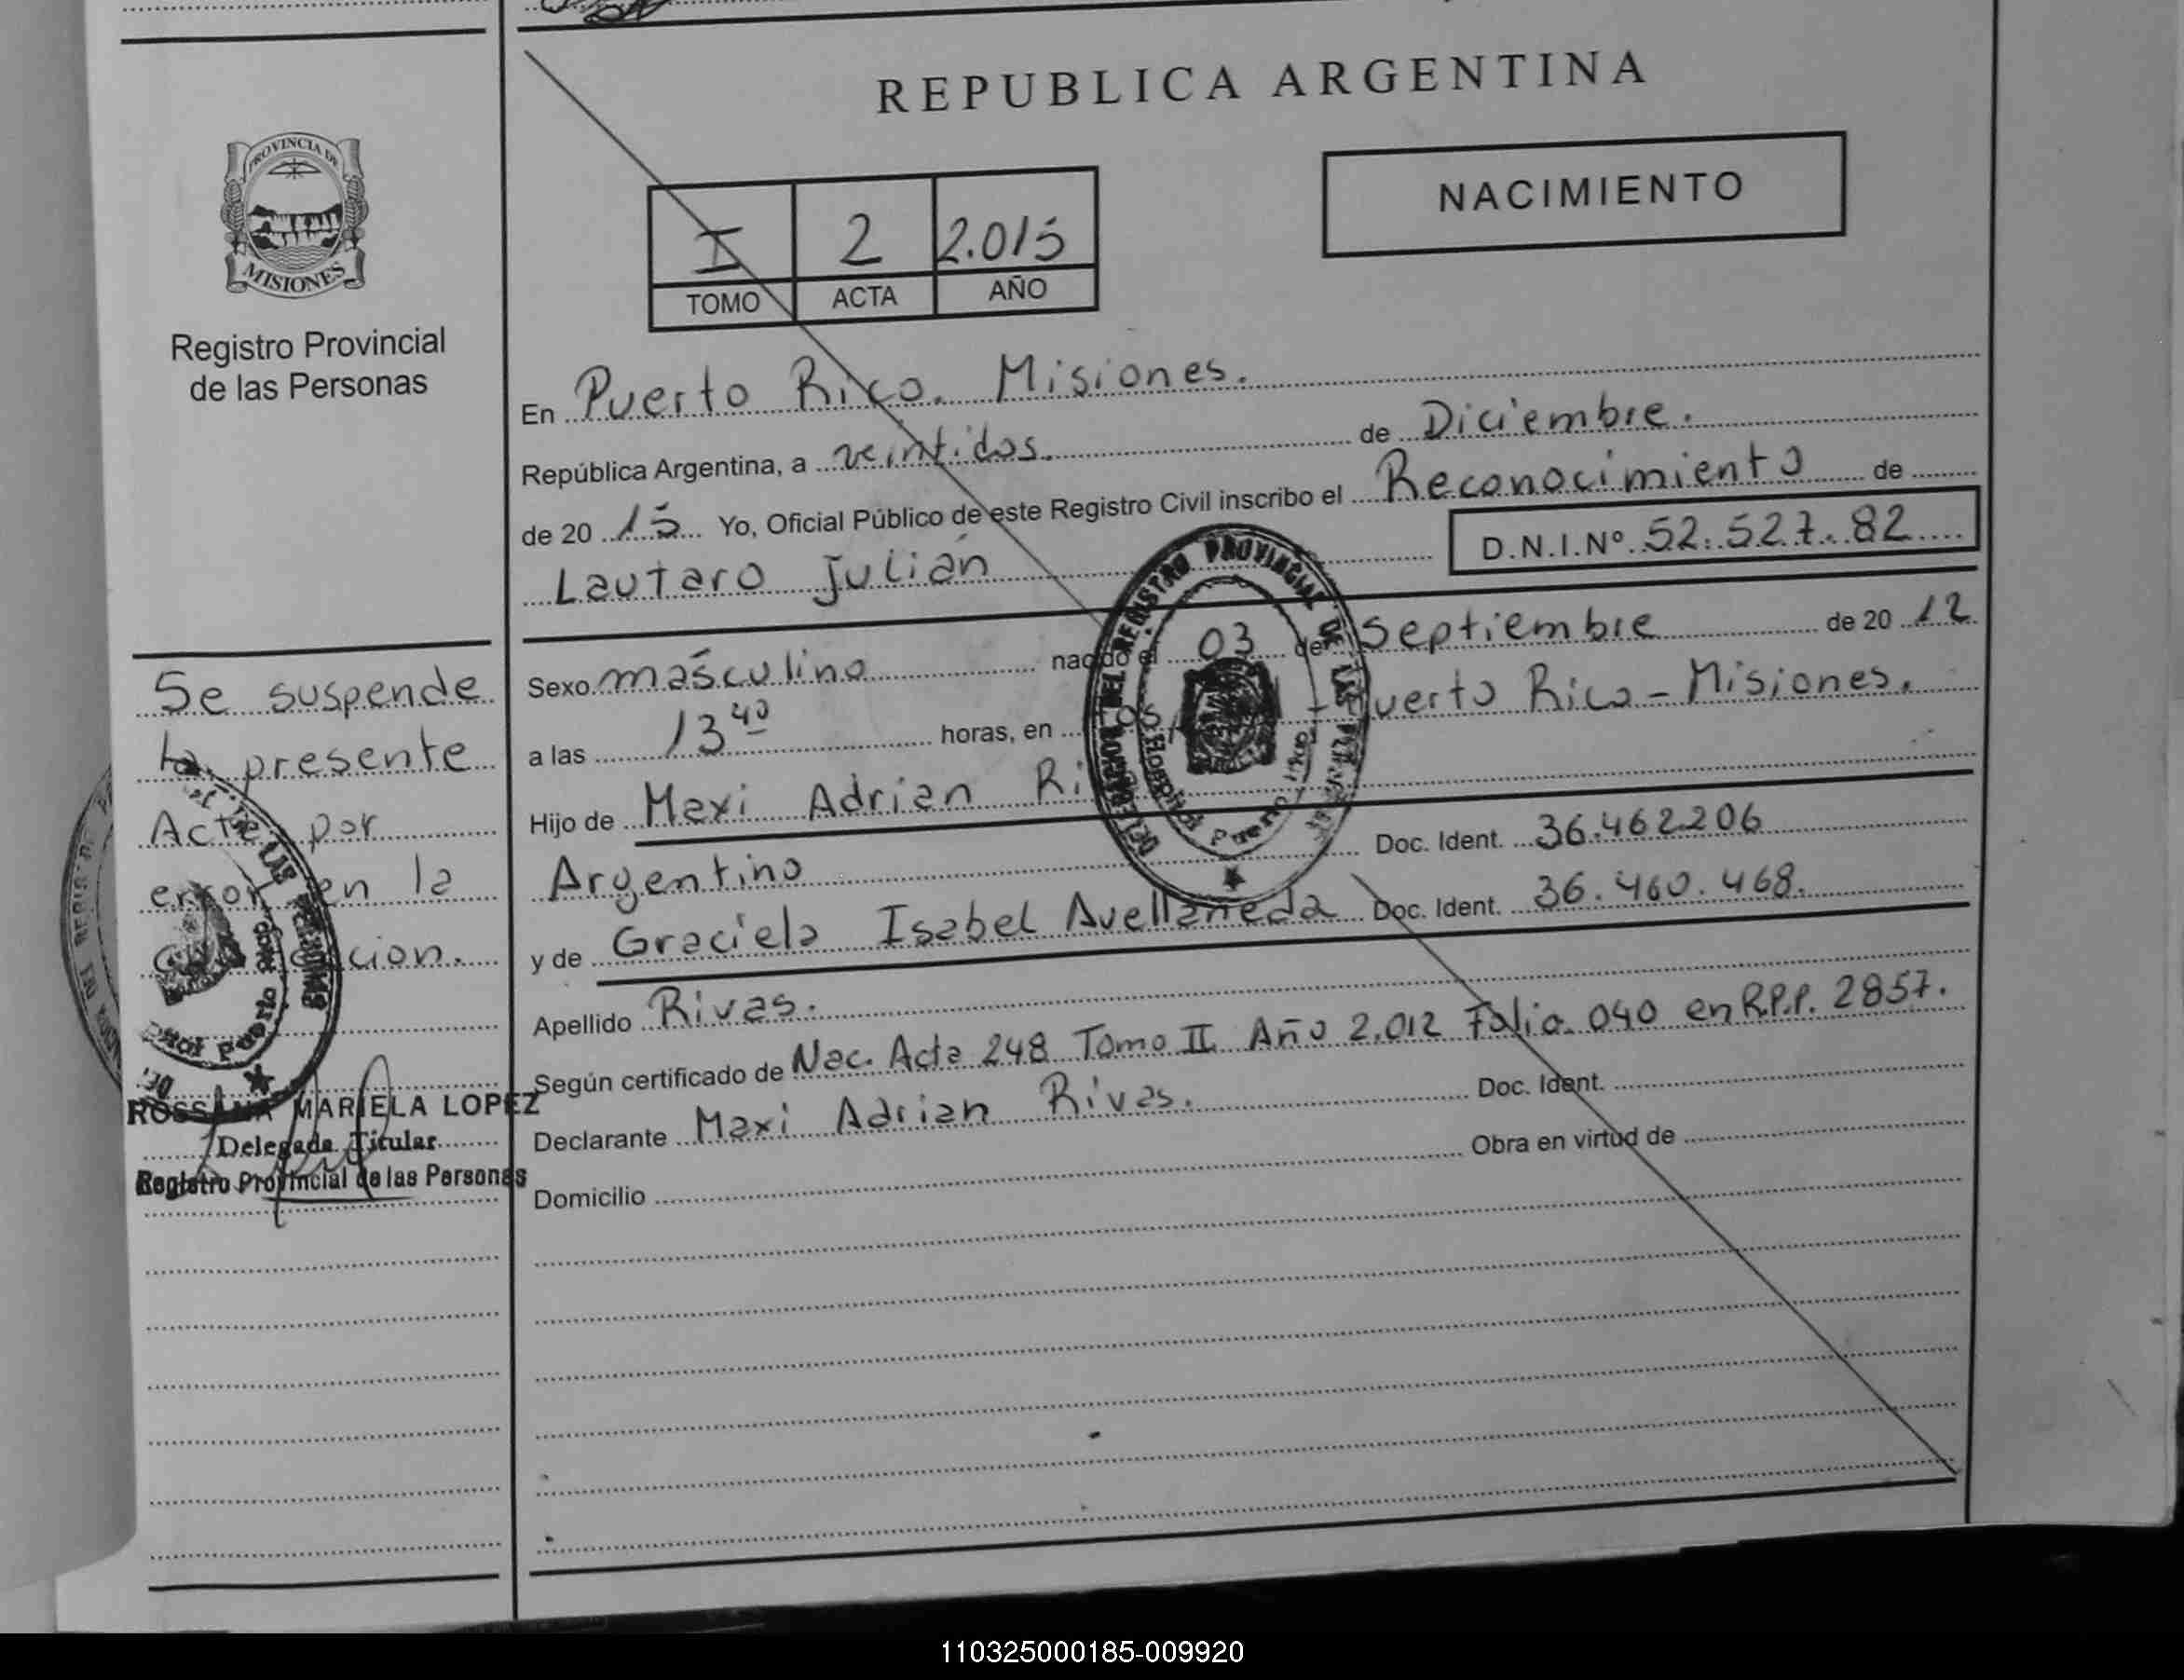 REPUBLICA ARGENTINA
NACIMIENTO
PROVINCIA DE
MISIONES
Registro Provincial
de las Personas
I 2 2.015
TOMO ACTA AÑO
En Puerto Rico. Misiones.
República Argentina, a veintidos. de Diciembre.
de 20 15 Yo, Oficial Público de este Registro Civil inscribo el Reconocimiento de
Lautaro Julián D.N.I.Nº 52.527.82
Sexo masculino nacido el 03 de Septiembre de 20 12
a las 13 40 horas, en Puerto Rico - Misiones.
Hijo de Maxi Adrian
Argentino Doc. Ident. 36.462.206
y de Graciela Isabel Avellaneda Doc. Ident. 36.460.468.
Apellido Rivas.
Según certificado de Nac. Acta 248 Tomo II Año 2.012 Folio 040 en R.P.P. 2857.
Declarante Maxi Adrian Rivas. Doc. Ident.
Domicilio Obra en virtud de
Se suspende
la presente
Acta por
error en la
ROSSANA MARIELA LOPEZ
Delegada Titular
Registro Provincial de las Personas
DEL REGISTRO PROVINCIAL DE LAS
110325000185-009920